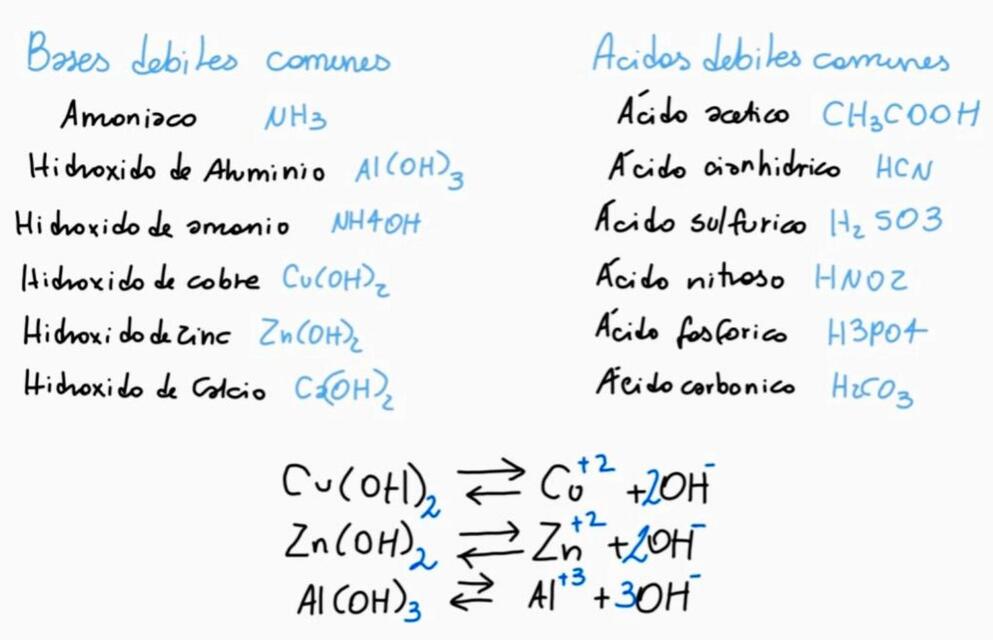 Bases debiles comunes
Amoniaco NH3
Hidroxido de Aluminio Al(OH)3
Hidroxido de amonio NH4OH
Hidroxido de cobre Cu(OH)2
Hidroxido de Zinc Zn(OH)2
Hidroxido de Calcio Ca(OH)2
Acidos debiles comunes
Ácido acetico CH3COOH
Ácido cianhidrico HCN
Ácido sulfurico H2SO3
Ácido nitroso HNO2
Ácido fosforico H3PO4
Ácido carbonico H2CO3
Cu(OH)2 ⇌ Cu+2 + 2OH-
Zn(OH)2 ⇌ Zn+2 + 2OH-
Al(OH)3 ⇌ Al+3 + 3OH-